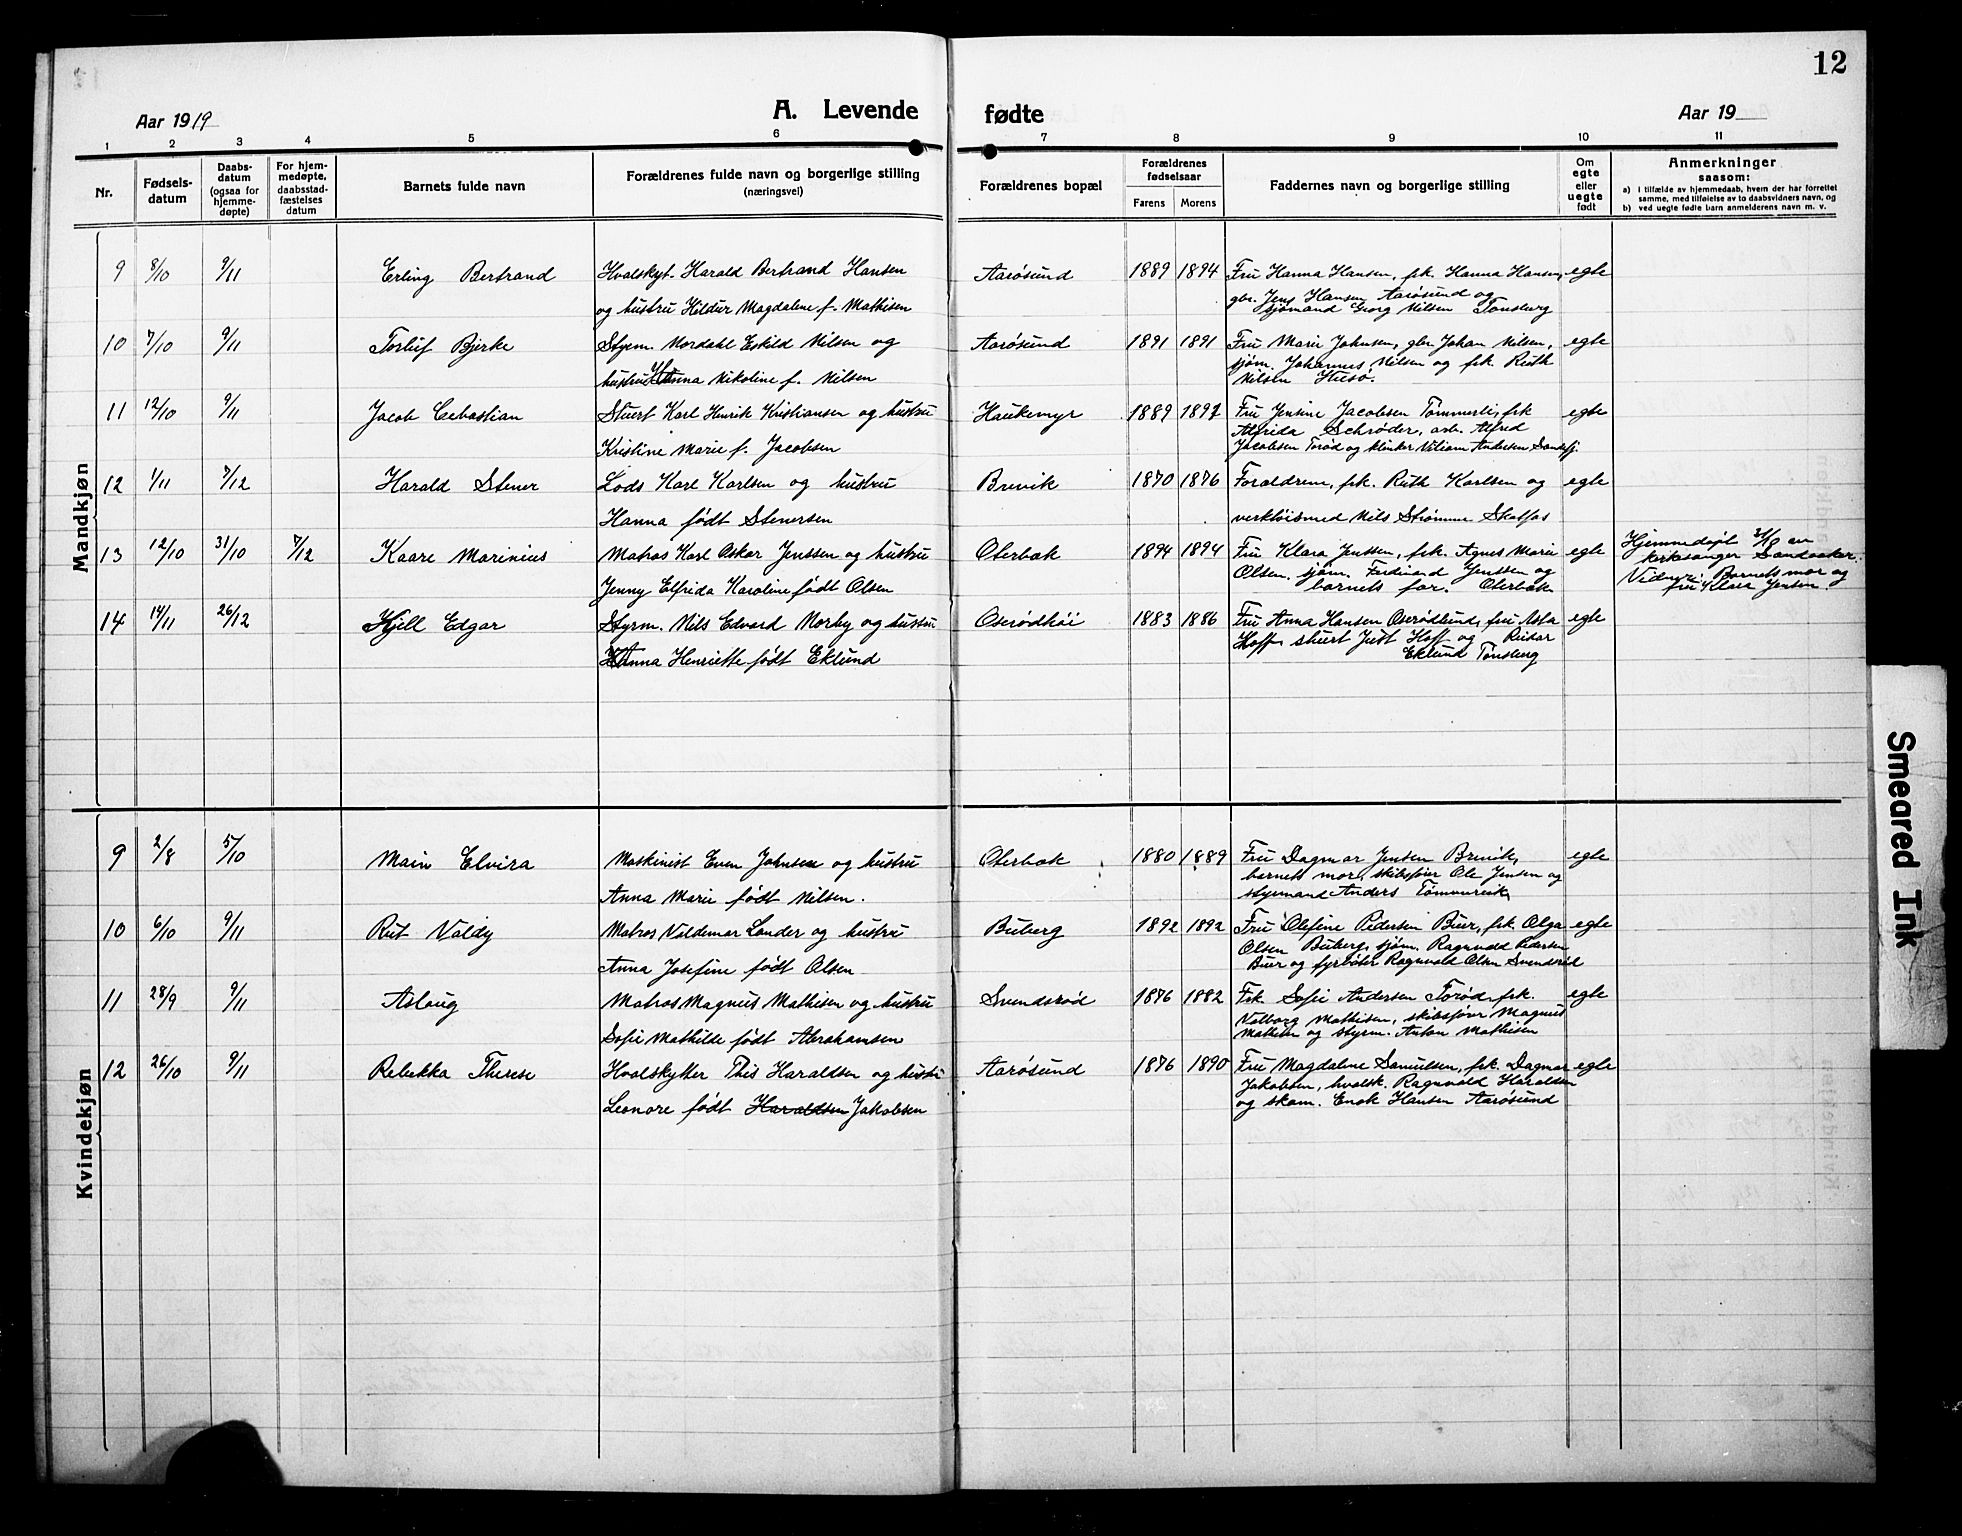 12
Aar 1919
A. Levende fødte
Aar 19
1 2 3 4 5 6 7 8 9 10 11
Nr.
Fødsels-
datum
Daabs-
datum
(ogsaa for
hjemme-
døpte)
For hjem-
medøpte,
daabsstad-
fæstelses
datum
Barnets fulde navn
Forældrenes fulde navn og borgerlige stilling
(næringsvei)
Forældrenes bopæl
Forældrenes
fødselsaar
Farens Morens
Faddernes navn og borgerlige stilling
Om
egte
eller
uegte
født
Anmerkninger
saasom:
a) I tilfælde av hjemmedaab, hvem der har forrettet
samme, med tilføielse av to daabsvidners navn, og
b) ved uegte fødte barn anmelderens navn m. v.
Mandkjøn
9 8/10 9/11 Erling Bertrand Hvalskyt. Harald Bertrand Hansen Aarøsund 1889 1894 Fru Hanna Hansen, frk. Hanna Hansen, egte
og hustru Hildur Magdalene f. Mathisen gbr. Jens Hansen Aarøsund og
sjømand Georg Nilsen Tønsberg
10 7/10 9/11 Torluf Bjerke Styrm. Nordahl Eskild Nilsen og Aarøsund 1891 1891 Fru Marie Johnsen, gbr. Johan Nilsen, egte
hustru Anna Nikoline f. Nilsen sjøm. Johannes Nilsen og frk. Ruth
Nilsen Husø.
11 12/10 9/11 Jacob Cebastian Stuert Karl Henrik Kristiansen og hustru Haukemyr 1889 1892 Fru Jensine Jacobsen Tømmerli, frk egte
Kristine Marie f. Jacobsen Alfrida Schrøder, arb. Alfred
Jacobsen Torød og klinker Viliam Andersen Sandefj.
12 1/11 7/12 Harald Stener Lods Karl Karlsen og hustru Brevik 1870 1876 Forældrene, frk. Ruth Karlsen og egte
Hanna født Stenersen verktøismed Nils Strømme Skotfos
13 12/10 31/10 7/12 Kaare Marinius Matros Karl Oskar Jenssen og hustru Oterbæk 1894 1894 Fru Klara Jenssen, frk. Agnes Marie egte Hjemmedøpt 31/10 av
Jenny Elfrida Karoline født Olsen Olsen, sjøm. Ferdinand Jenssen og kirkesanger Sandaaker.
barnets far. Oterbæk Vidner: Barnets mor og
fru Klara Jensen.
14 14/11 26/12 Kjell Edgar Styrm. Nils Edvard Norby og hustru Oserødhøi 1883 1886 Fru Anna Hansen Oserødlund, fru Asta egte
Anna Henriette født Eklund Hoff, stuert Just Hoff og Reidar
Eklund Tønsberg
Kvindekjøn
9 2/8 5/10 Main Elvira Maskinist Even Johnsen og hustru Oterbæk 1880 1889 Fru Dagmar Jensen Brevik, egte
Anna Marie født Nilsen. barnets mor, skibsfører Ole Jensen og
styrmand Anders Tømmervik,
10 6/10 9/11 Rut Valdy Matros Valdemar Lander og hustru Buberg 1892 1892 Fru Olefine Pedersen Buer, frk. Olga egte
Anna Josefine født Olsen Olsen Buberg, sjøm. Ragnvald Pedersen
Buer og fyrbøter Ragnvald Olsen Svendsrød
11 28/9 9/11 Aslaug Matros Magnus Mathisen og hustru Svendsrød 1876 1882 Frk. Sofie Andersen Torød, frk. egte
Sofie Mathilde født Abrahamsen Valborg Mathisen, skibsfører Magnus
Mathisen og styrm. Anton Mathisen
12 26/10 9/11 Rebekka Therese Hvalskytter This Haraldsen og hustru Aarøsund 1876 1890 Fru Magdalene Samuelsen, frk. Dagmar egte
Leonore født Haraldsen Jakobsen Jakobsen, hvalsk. Ragnvald Haraldsen
og skom. Enok Hansen Aarøsund
Smeared Ink